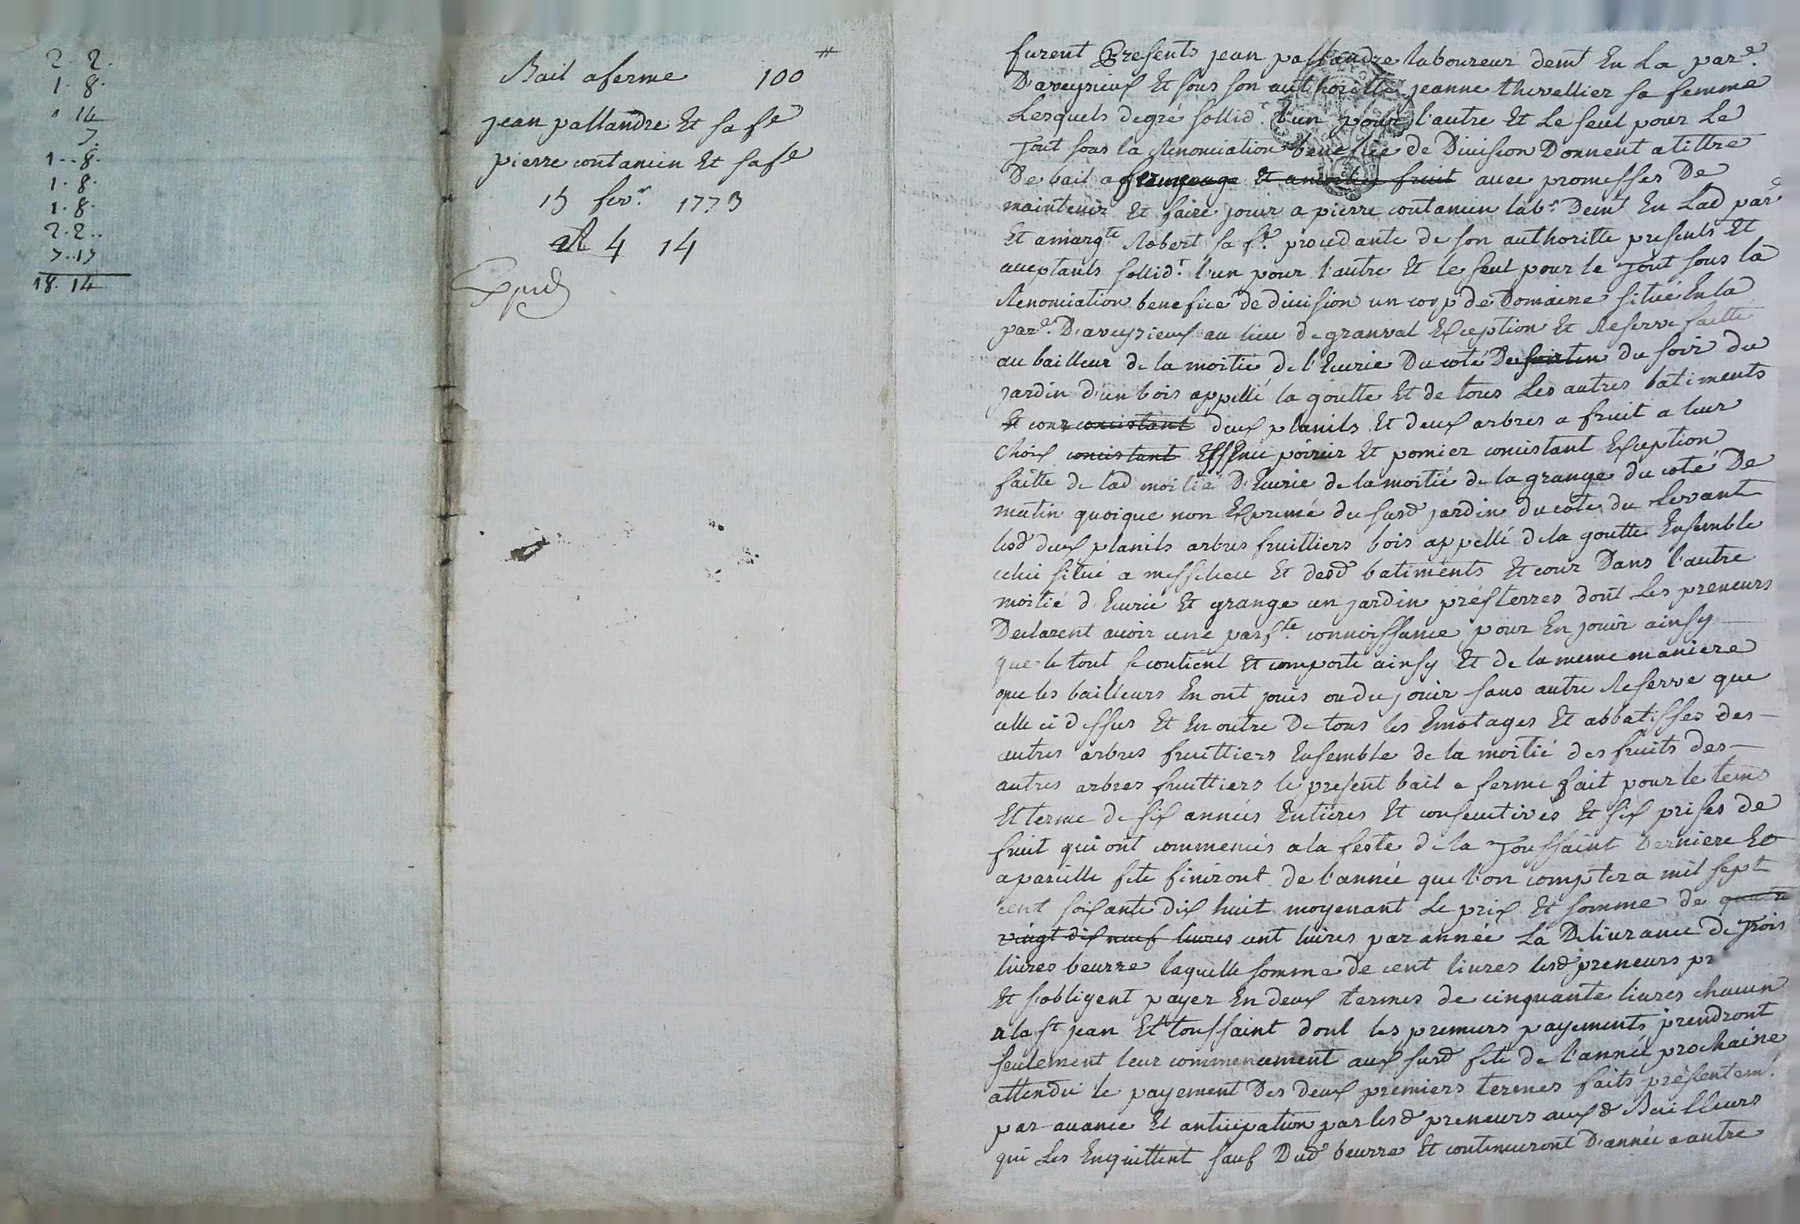 2 . 2 .
1 . 8 .
1 14
7 .
1 . . 8 .
1 . 8 .
1 . 8 .
2 . 2 . .
7 . . 17
18 . 14
Bail aferme 100 #
jean pallandre Et sa fe
pierre contamin Et sa fe
15 fevr. 1773
4 14
Expié
furent Presents jean pallandre laboureur demt En La pare.
D'aveysieux Et sous son authoritté jeanne thivellier sa femme
Lesquels degré sollidt. l'un pour l'autre Et Le seul pour Le
Tout sous la Renonciation benefice de Division Donnent a tittre
De bail a Et fruit avec promesses De
maintenir Et faire jouir a pierre contamin labr. Demt En Lad pare
Et a margte Robert sa fe. procedante de son authoritte presents Et
acceptants sollidt. l'un pour l'autre Et le seul pour le Tout sous la
Renonciation benefice de division un corp de Domaine situé En la
pare. D'aveysieux au lieu de granval Exception Et Reserve faitte
au bailleur de la moitié de l'Ecurie Du coté De du soir du
jardin d'un bois appellé la goutte Et de tous Les autres batiments
Et cour concistant deux planils Et deux arbres a fruit a leur
choix concistant poirier Et pomier concistant Exception
faitte de lad moitié D'Ecurie de la moitié de la grange du coté De
matin quoique non Exprimé du susd jardin du coté du Levant
lesd deux planils arbres fruittiers bois appellé de la goutte Ensemble
celui situé a messilieu Et desd batiments Et cour Dans l'autre
moitié d'Ecurie Et grange un jardin prés terres dont Les preneurs
Declarent avoir une parfte connoissance pour En jouir ainsy
que le tout se contient Et comporte ainsy Et de la meme maniere
que les bailleurs En ont jouis ou du jouir sans autre Reserve que
celle ci dessus Et En outre De tous les Emotages Et abbatisses des
autres arbres fruittiers Ensemble de la moitié des fruits des
autres arbres fruittiers le present bail a ferme fait pour le tems
Et terme de six années Entieres Et consecutives Et six prises de
fruit qui ont commencés a la feste de la Toussaint Derniere Et
a pareille fete finiront de l'année que l'on comptera mil sept
cent soixante Dix huit moyenant Le prix Et somme de quatre
vingt dix neuf livres cent livres par année La Delivrance De Trois
livres beurre laquelle somme de cent livres lesd preneurs
Et s'obligent payer En deux termes de cinquante livres chacun
a la st jean Et toussaint dont les premiers payements prendront
seulement leur commencement aux susd fete de l'année prochaine
attendu le payement Des deux premiers termes faits presentemt.
par avance Et anticipation par lesd preneurs auxd Bailleurs
qui Les Enquittent sauf Dud beurre Et continueront D'année a autre